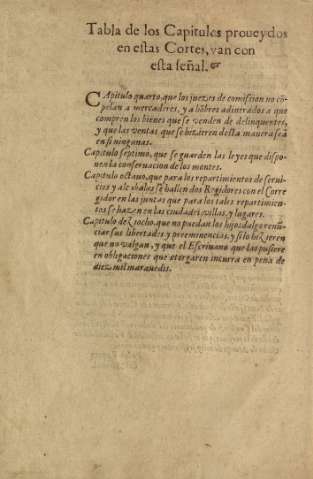 Tabla de los Capitulos proueydos
en estas Cortes, van con
esta señal. ☞
CApitulo quarto, que los juezes de comision no cõ-
pelan a mercaderes, y a hõbres adinerados a que
compren los bienes que se venden de delinquentes,
y que las ventas que se hizieren desta manera seã
en si ningunas.
Capitulo septimo, que se guarden las leyes que dispo-
nen la conseruacion de los montes.
Capitulo octauo, que para los repartimientos de serui-
cios y alcabalas se hallen dos Regidores con el Corre
gidor en las juntas que para los tales repartimien-
tos se hazen en las ciudades, villas, y lugares.
Capitulo deziocho, que no puedan los hijosdalgo renũ-
ciar sus libertades y preeminencias, y si lo hizieren
que no valgan, y que el Escriuano que las pusiere
en obligaciones que otorgaren incurra en pena de
diez mil marauedis.